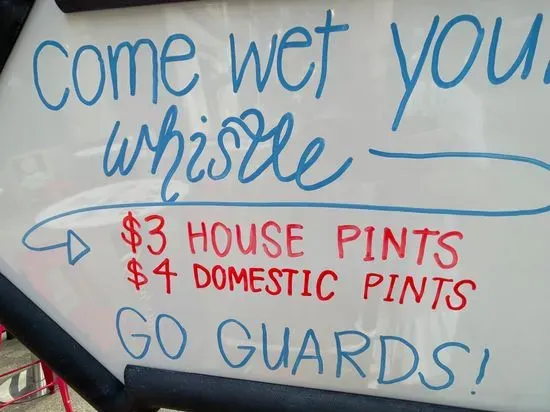 Come wet your
whistle
$3 HOUSE PINTS
$4 DOMESTIC PINTS
GO GUARDS!